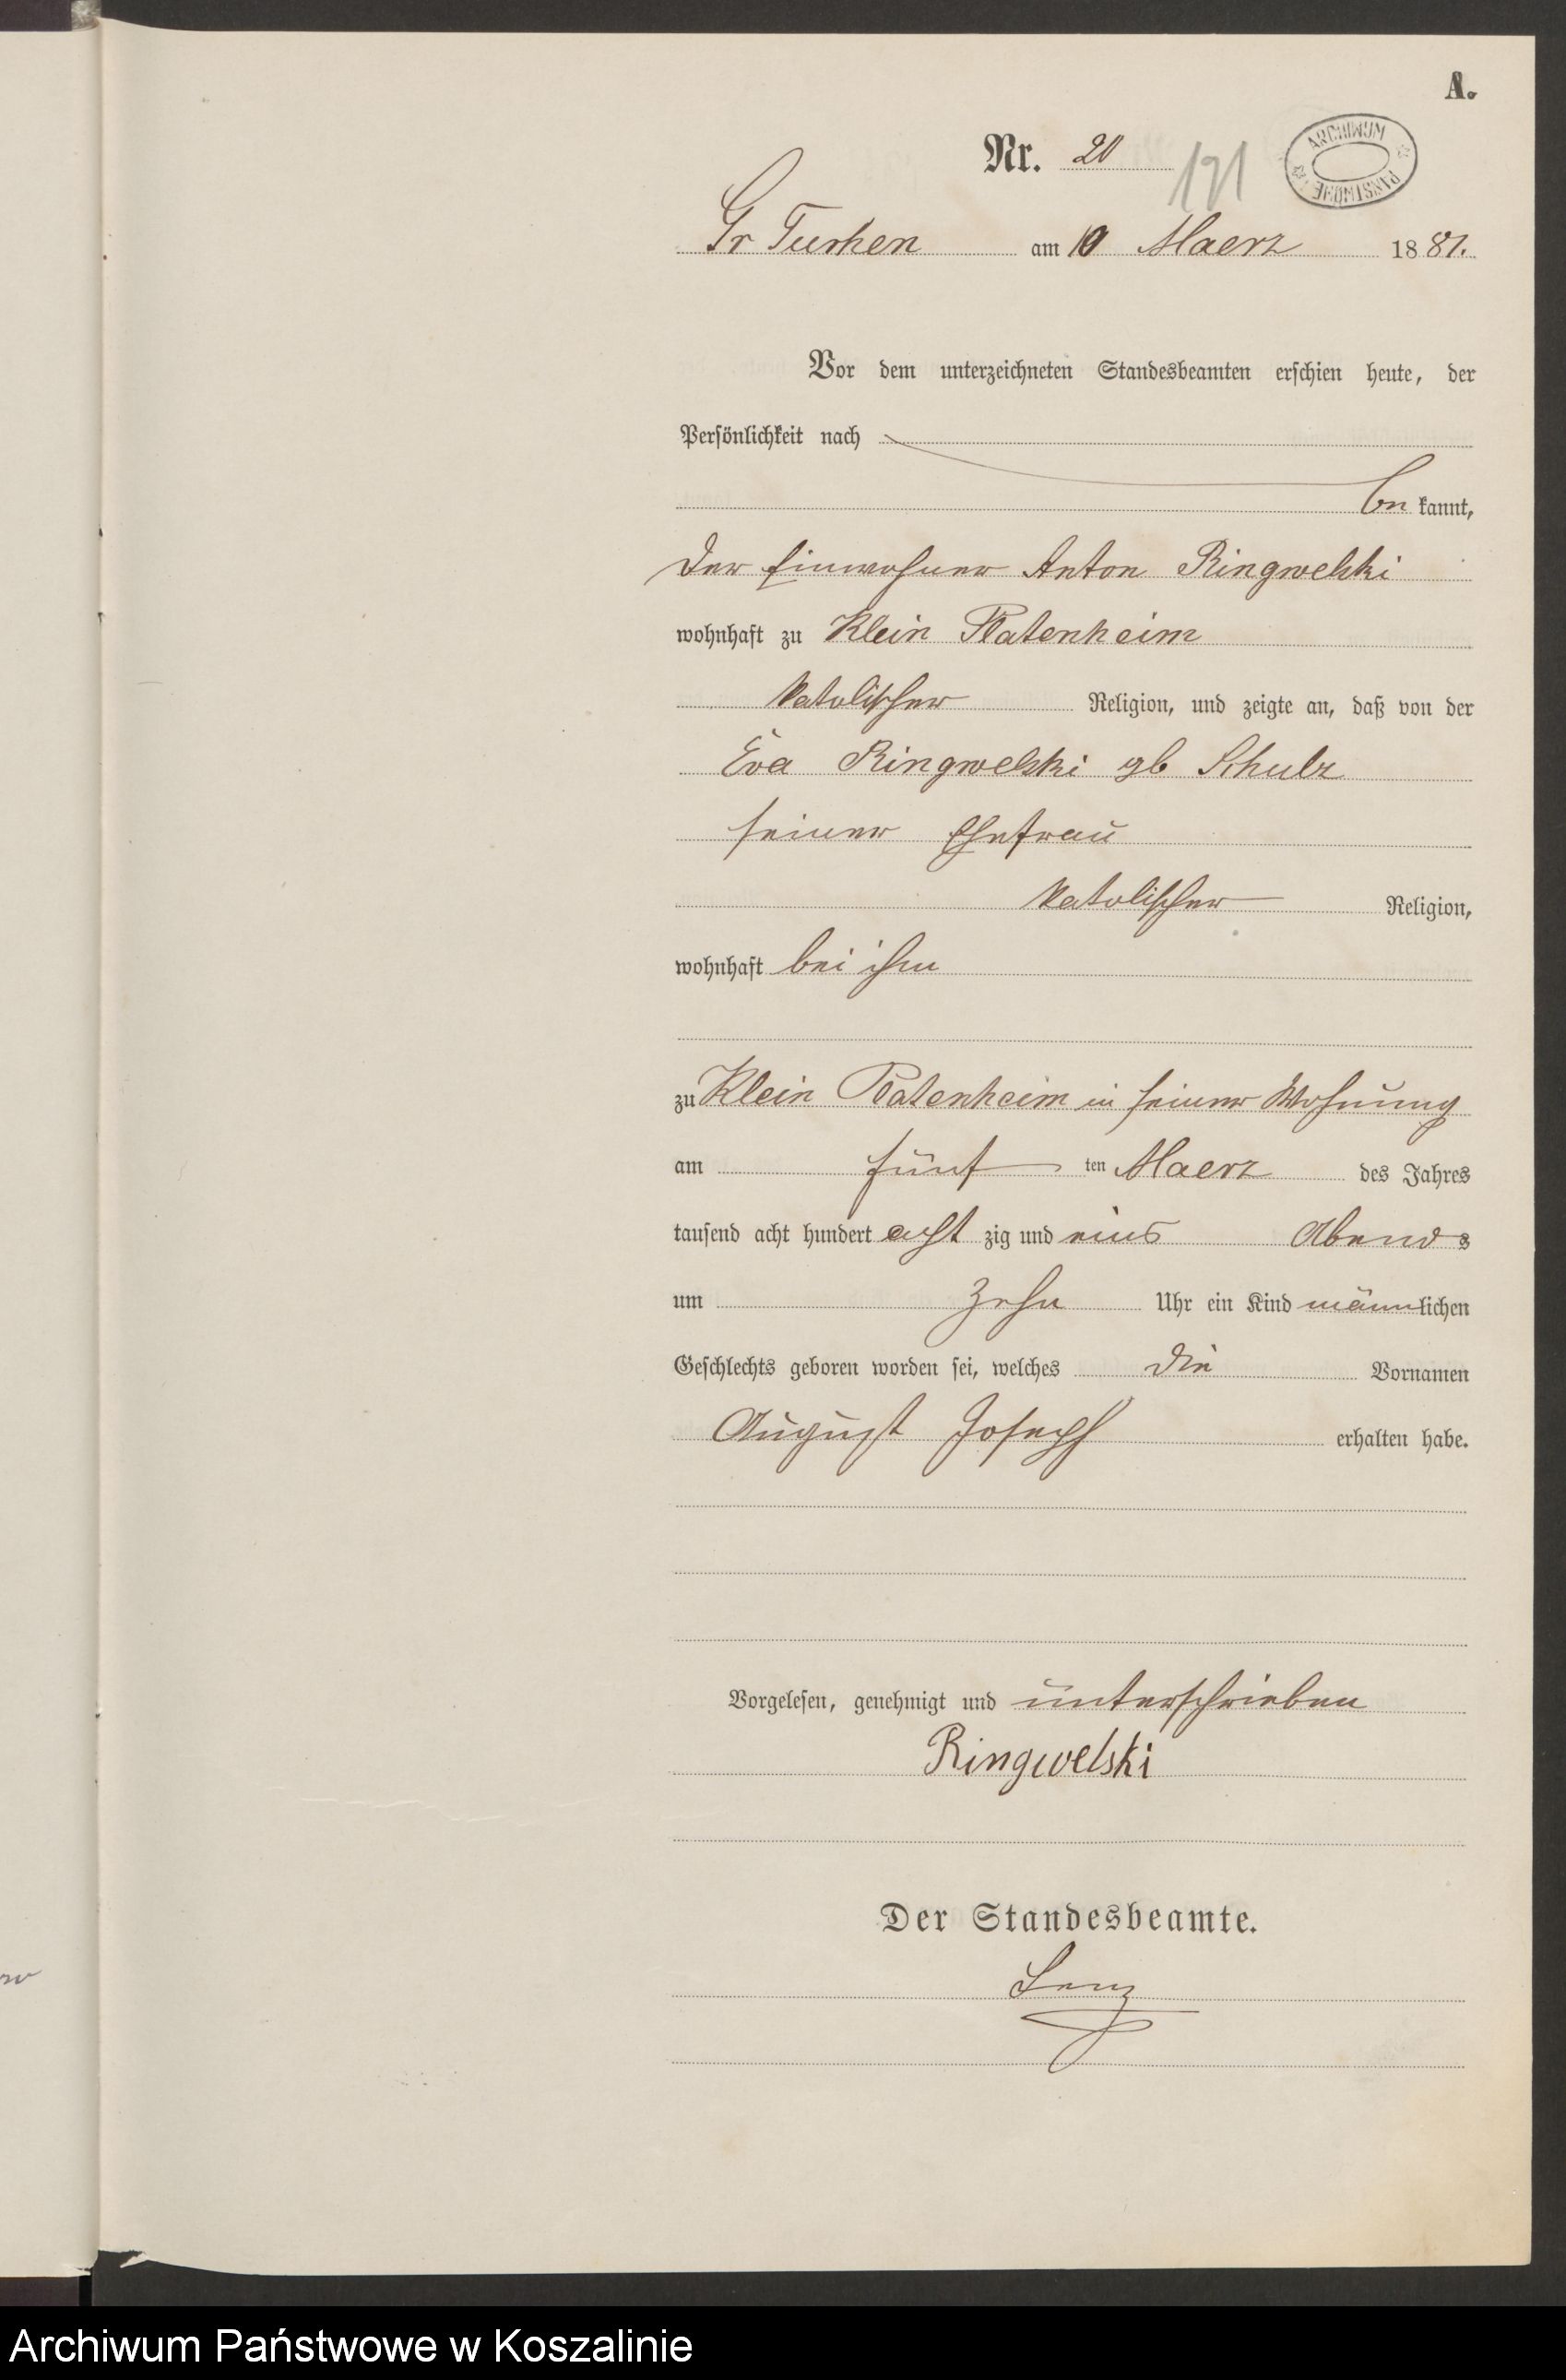 A.
Nr. 20
121
ARCHIWUM PAŃSTWOWE
Gr Tuchen am 10 Maerz 1881.
Vor dem unterzeichneten Standesbeamten erschien heute, der
Persönlichkeit nach
be kannt,
der Einwohner Anton Ringwelski
wohnhaft zu Klein Platenheim
katolischer Religion, und zeigte an, daß von der
Eva Ringwelski gb Schulz
seiner Ehefrau
katolischer Religion,
wohnhaft bei ihm
zu Klein Platenheim in seiner Wohnung
am fünf ten Maerz des Jahres
tausend acht hundert acht zig und eins Abends
um zehn Uhr ein Kind männlichen
Geschlechts geboren worden sei, welches die Vornamen
August Joseph erhalten habe.
Vorgelesen, genehmigt und unterschrieben
Ringwelski
Der Standesbeamte.
Lenz
Archiwum Państwowe w Koszalinie